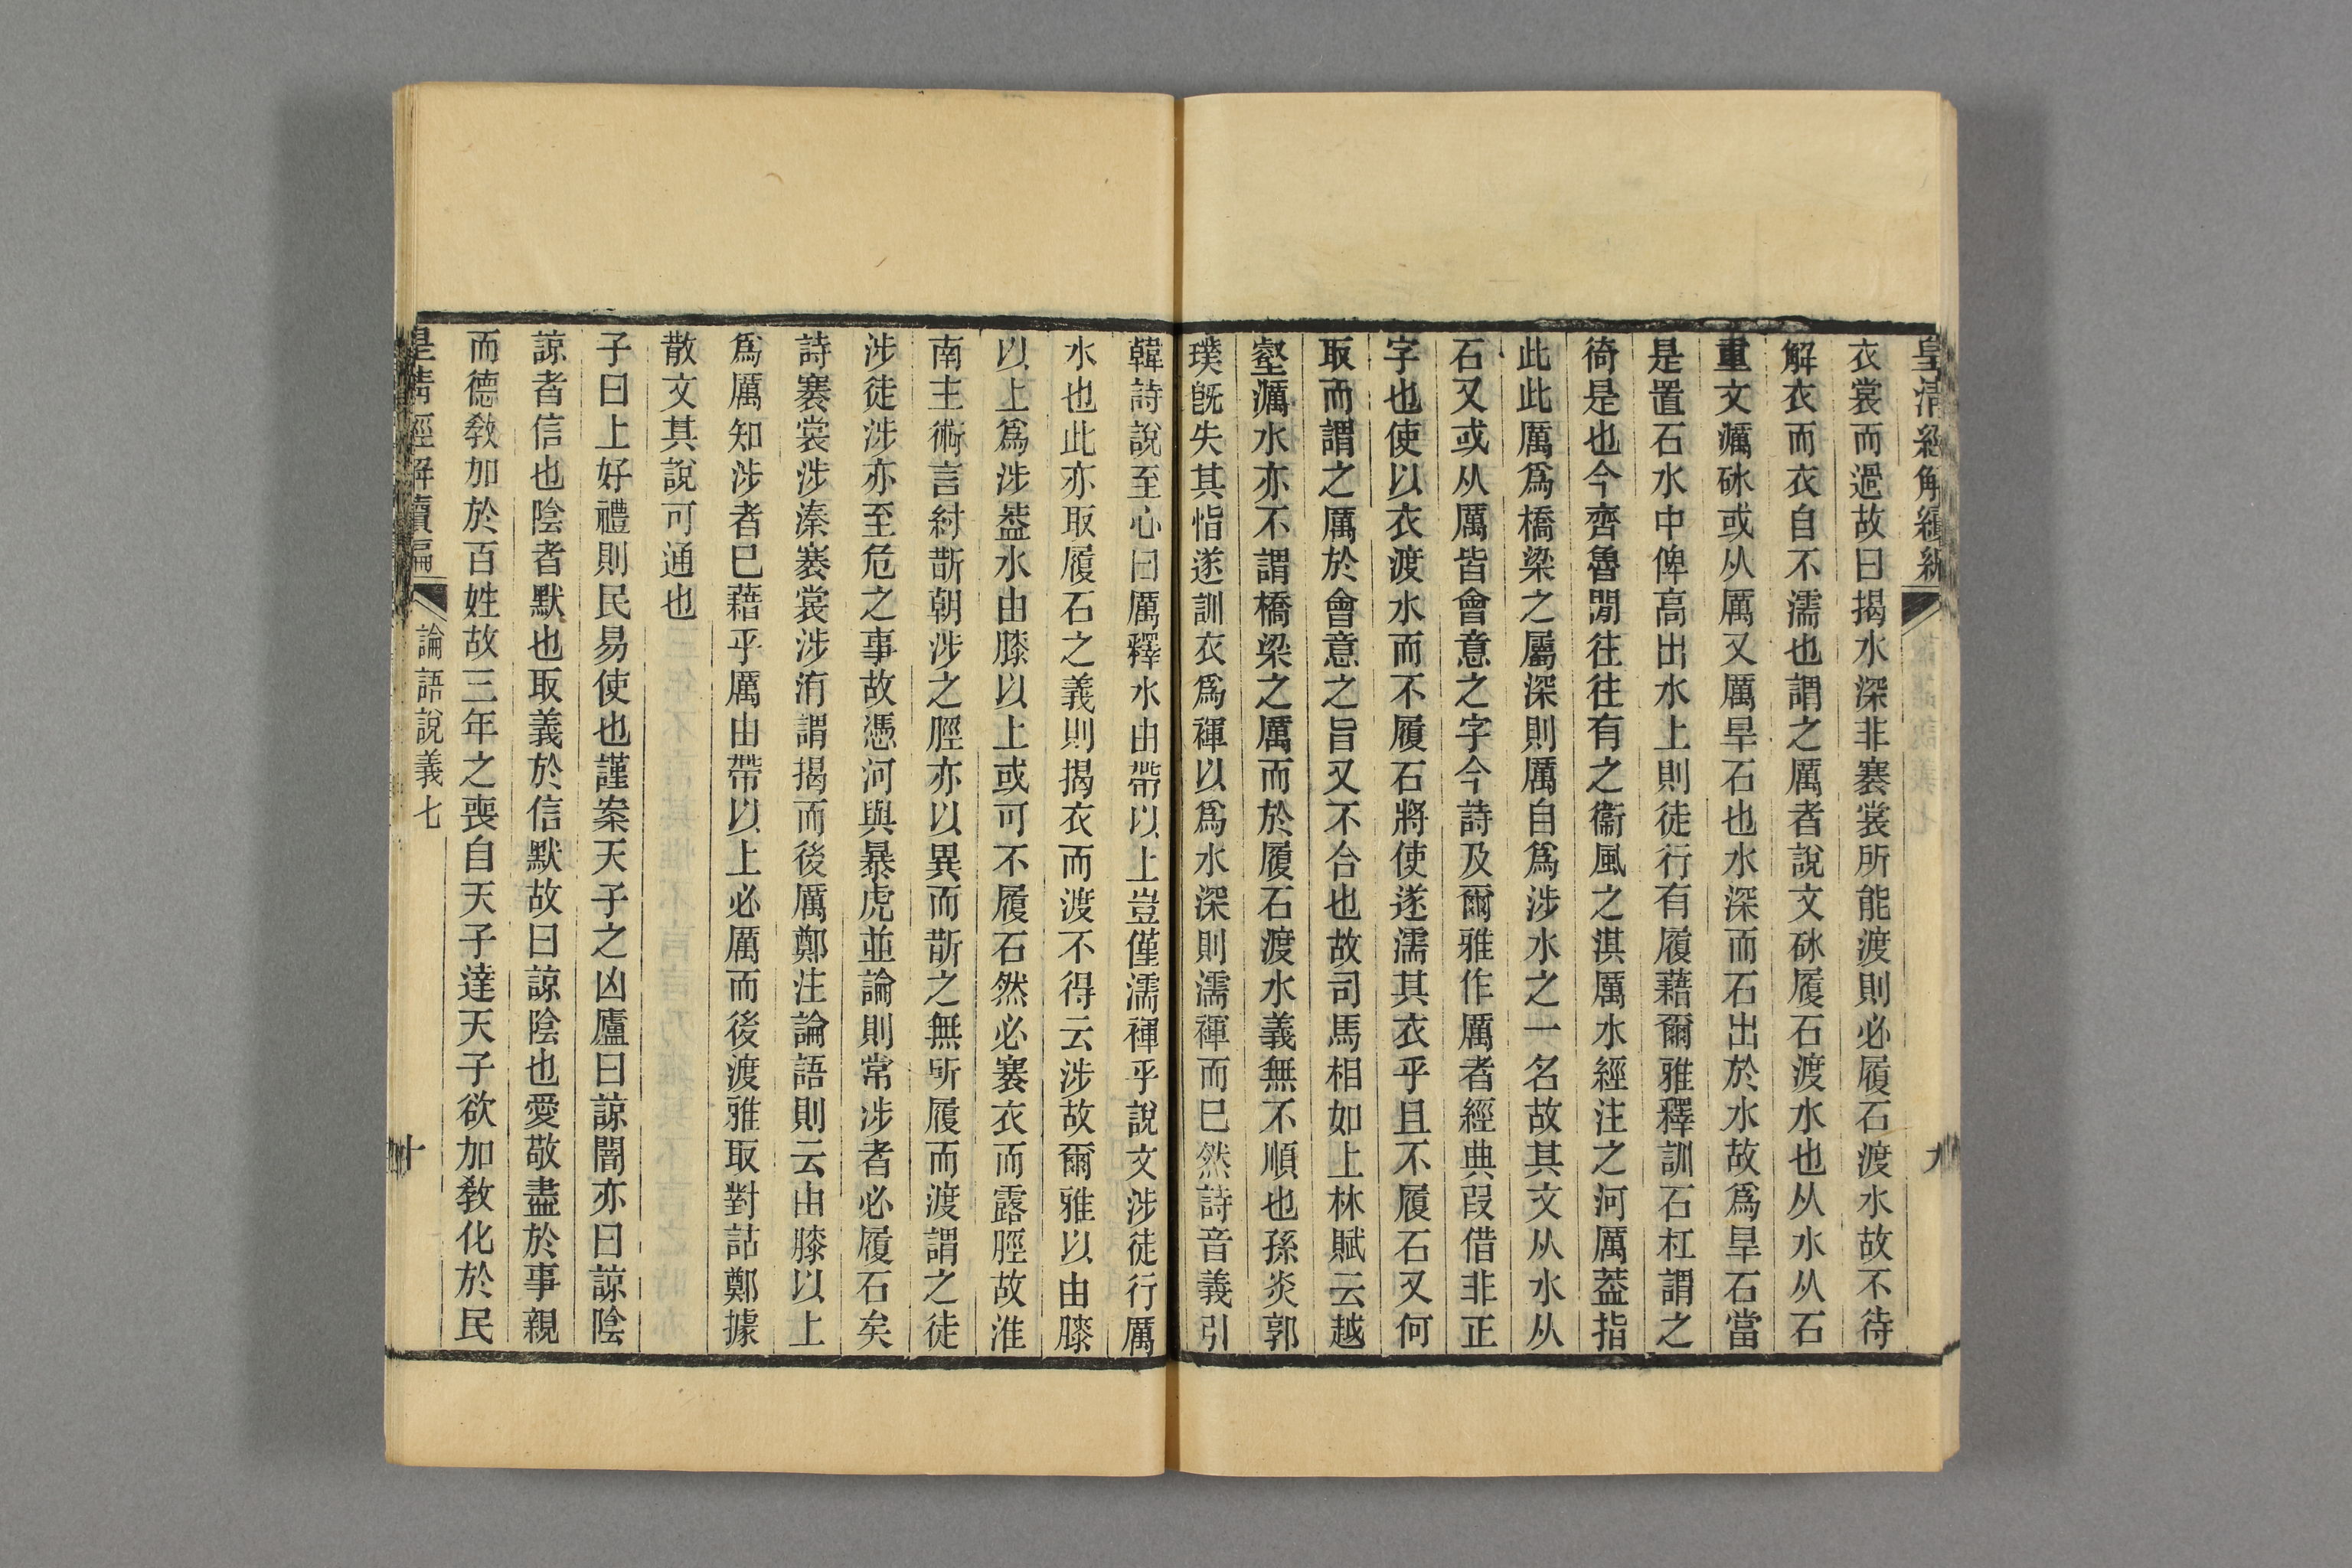 皇清經解續編
九
衣裳而過故曰揭水深非褰裳所能渡則必履石渡水故不待
解衣而衣自不濡也謂之厲者說文砅履石渡水也从水从石
重文濿砅或从厲又厲旱石也水深而石出於水故爲旱石當
是置石水中俾高出水上則徒行有履藉爾雅釋訓石杠謂之
徛是也今齊魯閒往往有之衞風之淇厲水經注之河厲葢指
此此厲爲橋梁之屬深則厲自爲涉水之一名故其文从水从
石又或从厲皆會意之字今詩及爾雅作厲者經典叚借非正
字也使以衣渡水而不履石將使遂濡其衣乎且不履石又何
取而謂之厲於會意之旨又不合也故司馬相如上林賦云越
壑濿水亦不謂橋梁之厲而於履石渡水義無不順也孫炎郭
璞旣失其恉遂訓衣爲褌以爲水深則濡褌而巳然詩音義引
韓詩說至心曰厲釋水由帶以上豈僅濡褌乎說文涉徒行厲
水也此亦取履石之義則揭衣而渡不得云涉故爾雅以由膝
以上爲涉葢水由膝以上或可不履石然必褰衣而露脛故淮
南主術言紂斮朝涉之脛亦以異而斮之無所履而渡謂之徒
涉徒涉亦至危之事故憑河與暴虎並論則常涉者必履石矣
詩褰裳涉溱褰裳涉洧謂揭而後厲鄭注論語則云由膝以上
爲厲知涉者巳藉乎厲由帶以上必厲而後渡雅取對詁鄭據
散文其說可通也
子曰上好禮則民易使也謹案天子之凶廬曰諒闇亦曰諒陰
諒者信也陰者默也取義於信默故曰諒陰也愛敬盡於事親
而德敎加於百姓故三年之喪自天子達天子欲加敎化於民
皇淸經解續編
論語說義七
十